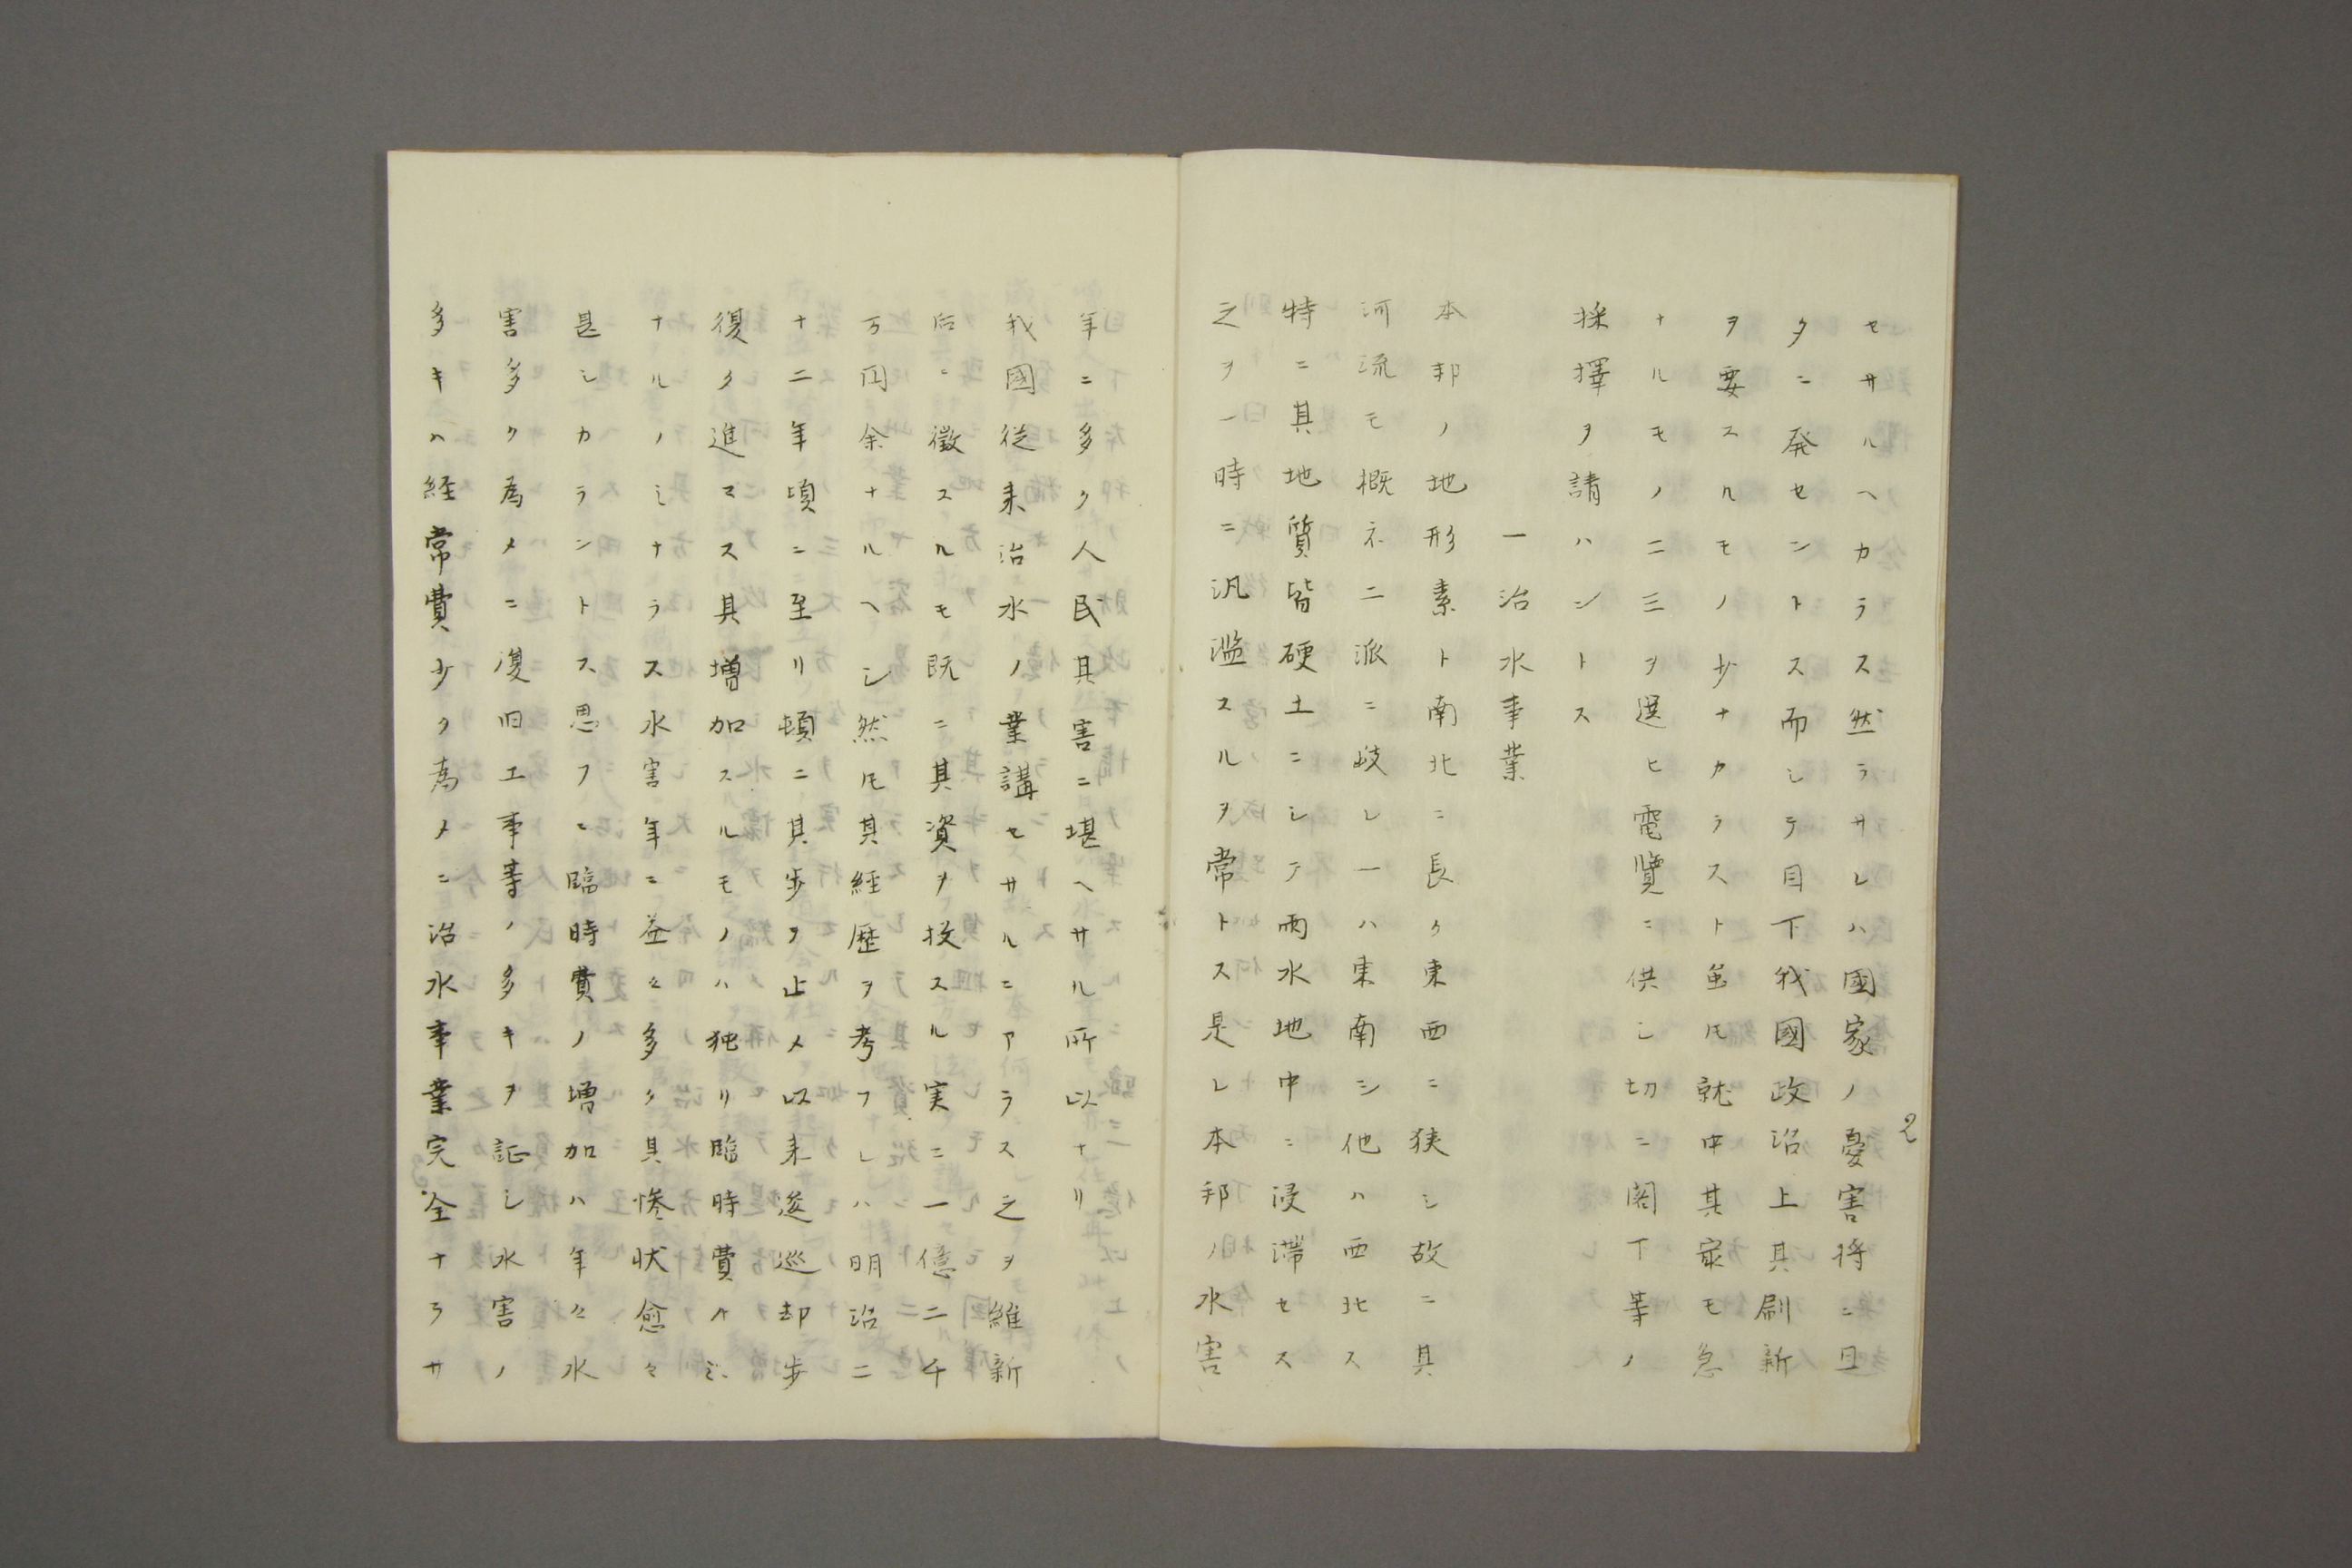 セサルヘカラス然ラサレハ國家ノ憂害将ニ旦
夕ニ発セントス而シテ目下我國政治上其刷新
ヲ要スルモノ少ナカラスト虽𪜈就中其最モ急
ナルモノ二三ヲ選ヒ電覽ニ供シ切ニ閣下等ノ
採擇ヲ請ハントス
一治水事業
本邦ノ地形素ト南北ニ長ク東西ニ狭シ故ニ其
河流モ概ネ二派ニ岐レ一ハ東南シ他ハ西北ス
特ニ其地質皆硬土ニシテ雨水地中ニ浸滞セス
之ヲ一時ニ汎濫スルヲ常トス是レ本邦ノ水害
年ニ多ク人民其害ニ堪ヘサル所以ナリ
我國従来治水ノ業講セサルニアラス之ヲ維新
后ニ徴スルモ既ニ其資ヲ投スル実ニ一億二千
万円余ナルヘシ然𪜈其経歴ヲ考フレハ明治二
十二年頃ニ至リ頓ニ其歩ヲ止メ以来逡巡却歩
復タ進マス其増加スルモノハ独リ臨時費ノミ
ナルノミナラス水害年ニ益々多ク其惨状愈々
甚シカラントス思フニ臨時費ノ増加ハ年々水
害多ク為メニ復旧工事等ノ多キヲ証シ水害ノ
多キハ経常費少ク為メニ治水事業完全ナラサ
2